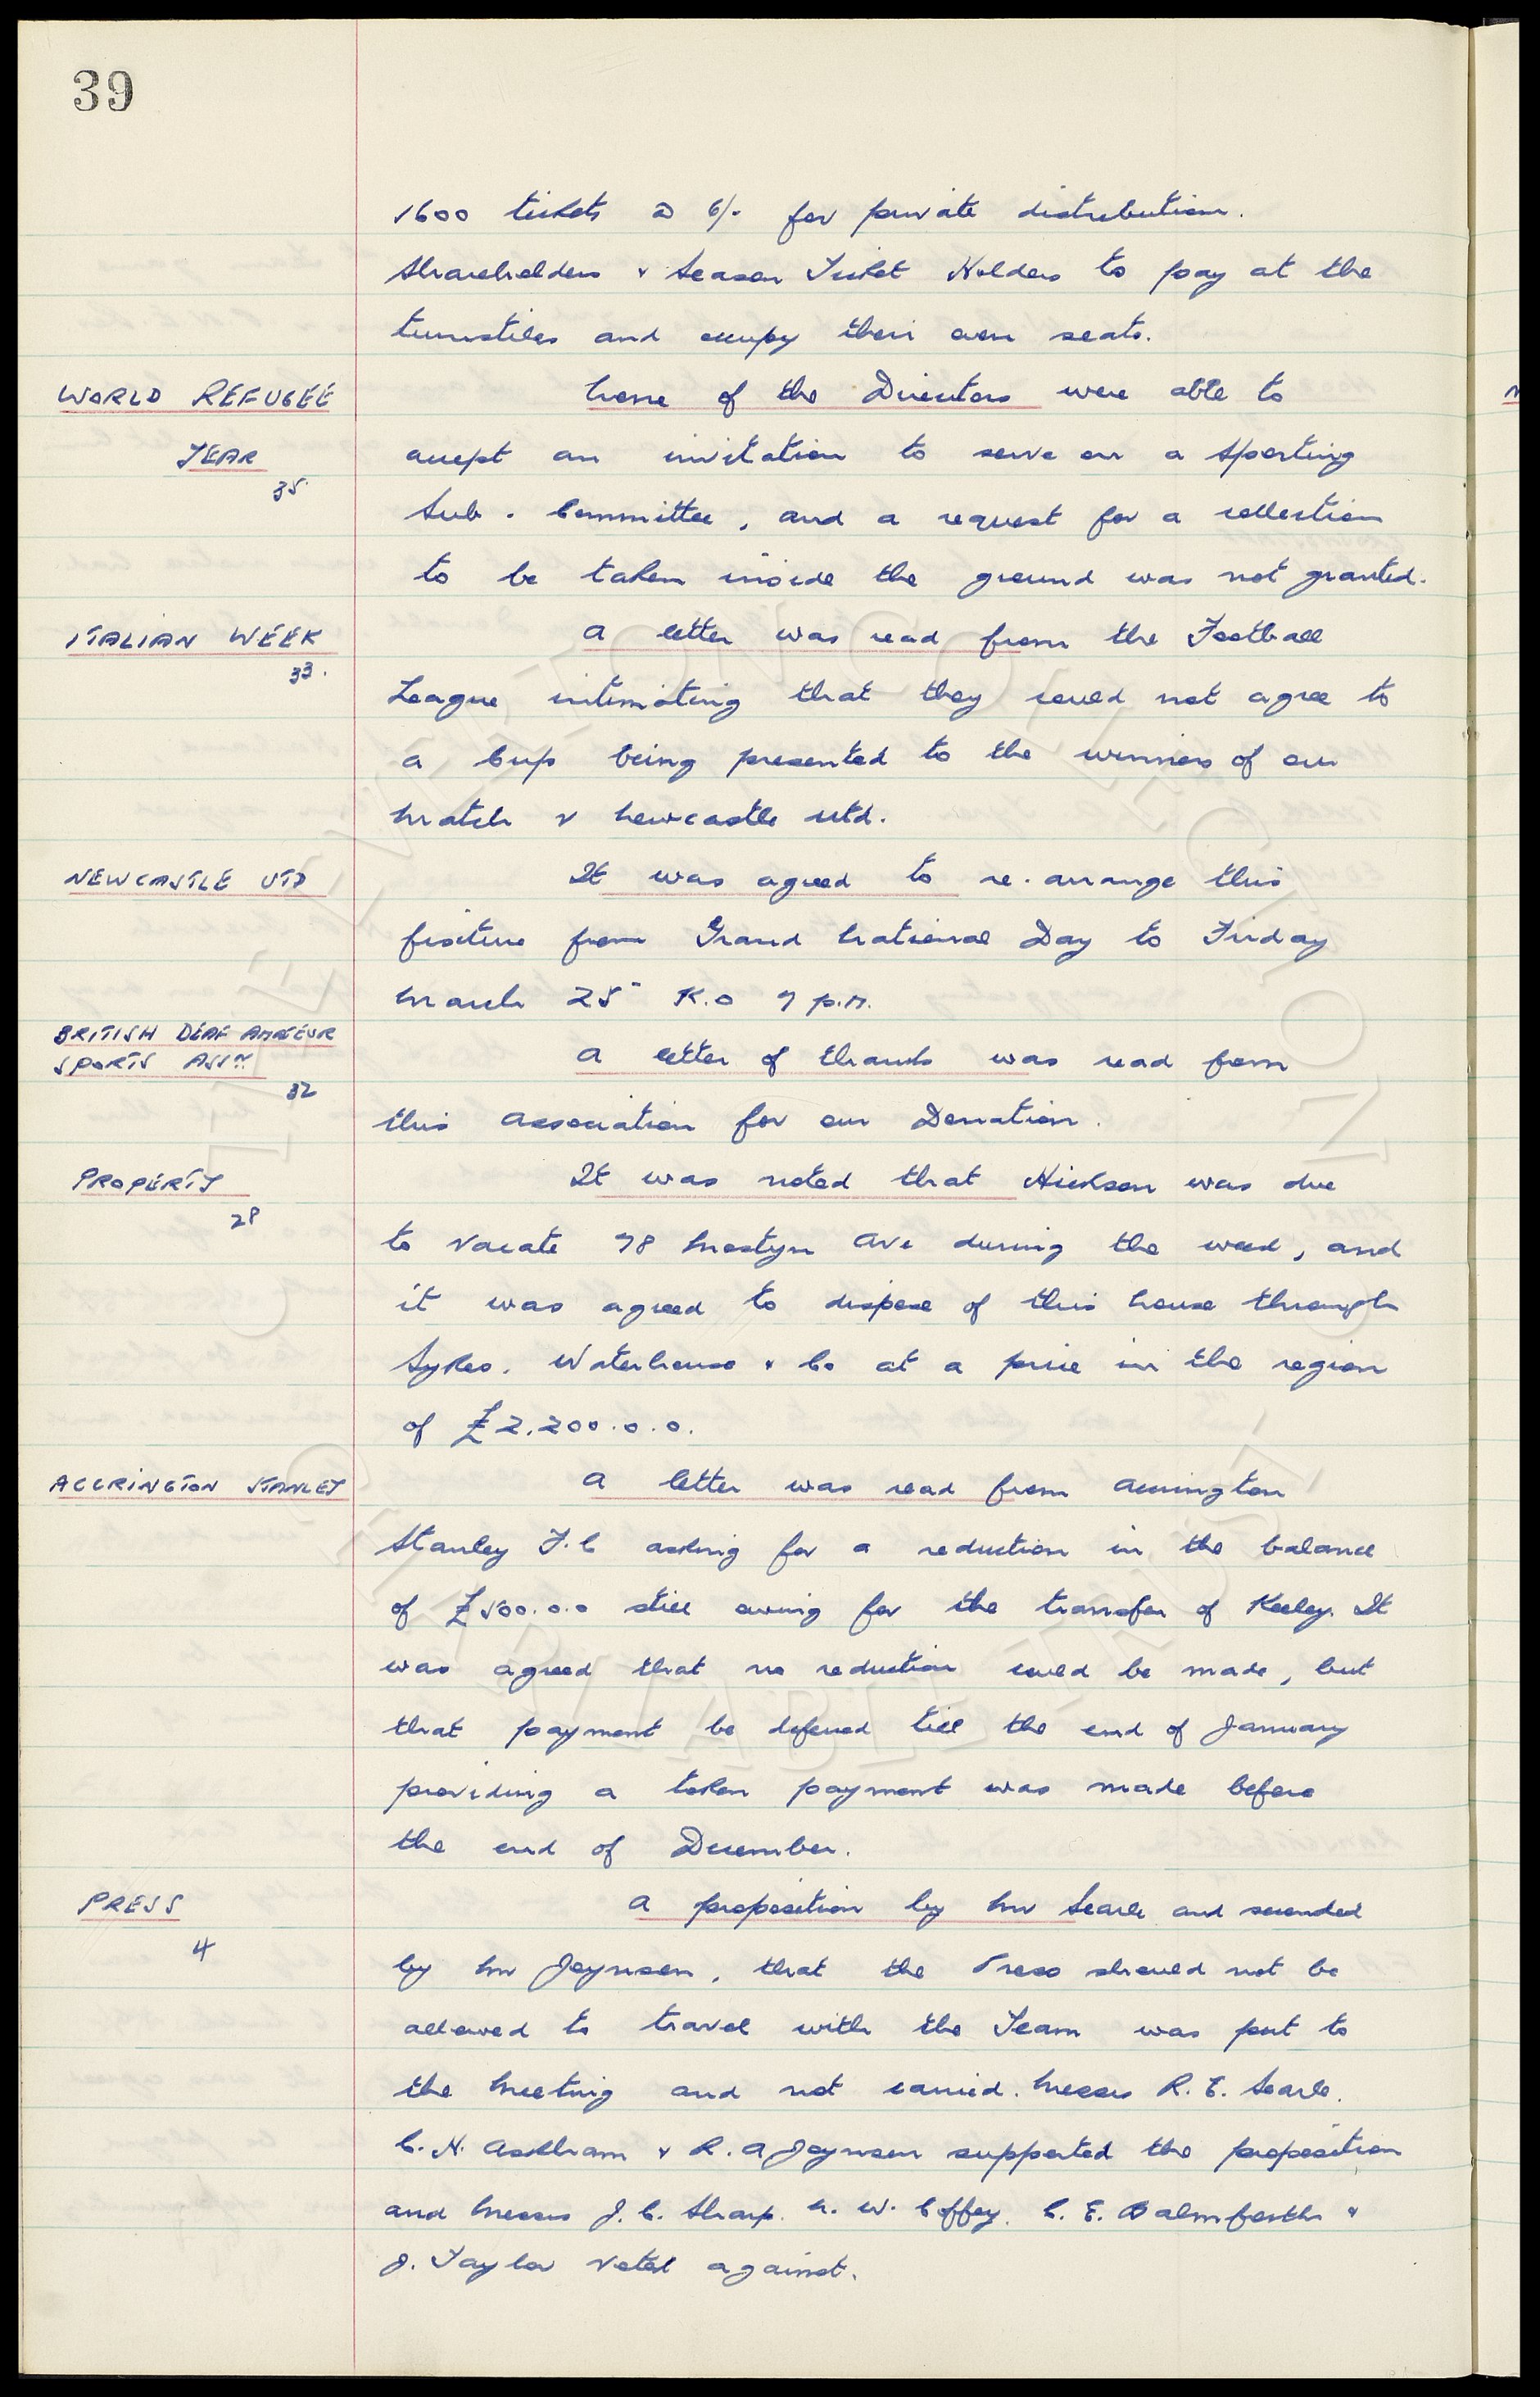 39
1600 tickets @ 6/- for private distribution.
Shareholders & Season Ticket Holders to pay at the
turnstiles and occupy their own seats.
WORLD REFUGEE
YEAR
35.
None of the Directors were able to
accept an invitation to serve on a Sporting
Sub. Committee, and a request for a collection
to be taken inside the ground was not granted.
ITALIAN WEEK
33.
A letter was read from the Football
League intimating that they could not agree to
a Cup being presented to the winners of our
match v Newcastle Utd.
NEWCASTLE UTD
It was agreed to re-arrange this
fixture from Grand National Day to Friday
March 25" K.O 7 p.m.
BRITISH DEAF AMATEUR
SPORTS ASSN
32
A letter of thanks was read from
this Association for our Donation.
PROPERTY
28
It was noted that Hickson was due
to vacate 78 Mostyn Ave during the week, and
it was agreed to dispose of this house through
Sykes. Waterhouse & Co at a price in the region
of £2.200.0.0.
ACCRINGTON STANLEY
A letter was read from Accrington
Stanley F.C asking for a reduction in the balance
of £500.0.0 still owing for the transfer of Keeley. It
was agreed that no reduction could be made, but
that payment be deferred till the end of January
providing a token payment was made before
the end of December.
PRESS
4
A proposition by Mr Searle and seconded
by Mr Joynson, that the Press should not be
allowed to travel with the Team was put to
the Meeting and not carried. Messrs R. E. Searle.
C. H. Askham & R. A Joynson supported the proposition
and Messrs J. C. Sharp. N. W. Coffey. C. E. Balmforth &
J. Taylor voted against.